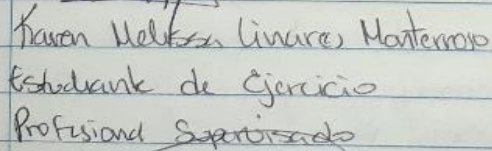 Karen Melissa Linares Monterroso
Estudiante de Ejercicio
Profesional Supervisado